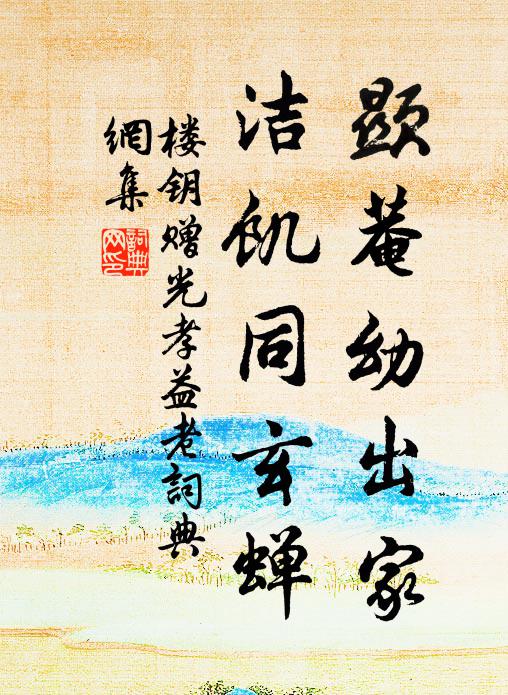 顕菴幼出家
洁飢同玄蝉
楼钥赠光孝益老詞典
網集
詞典
网印